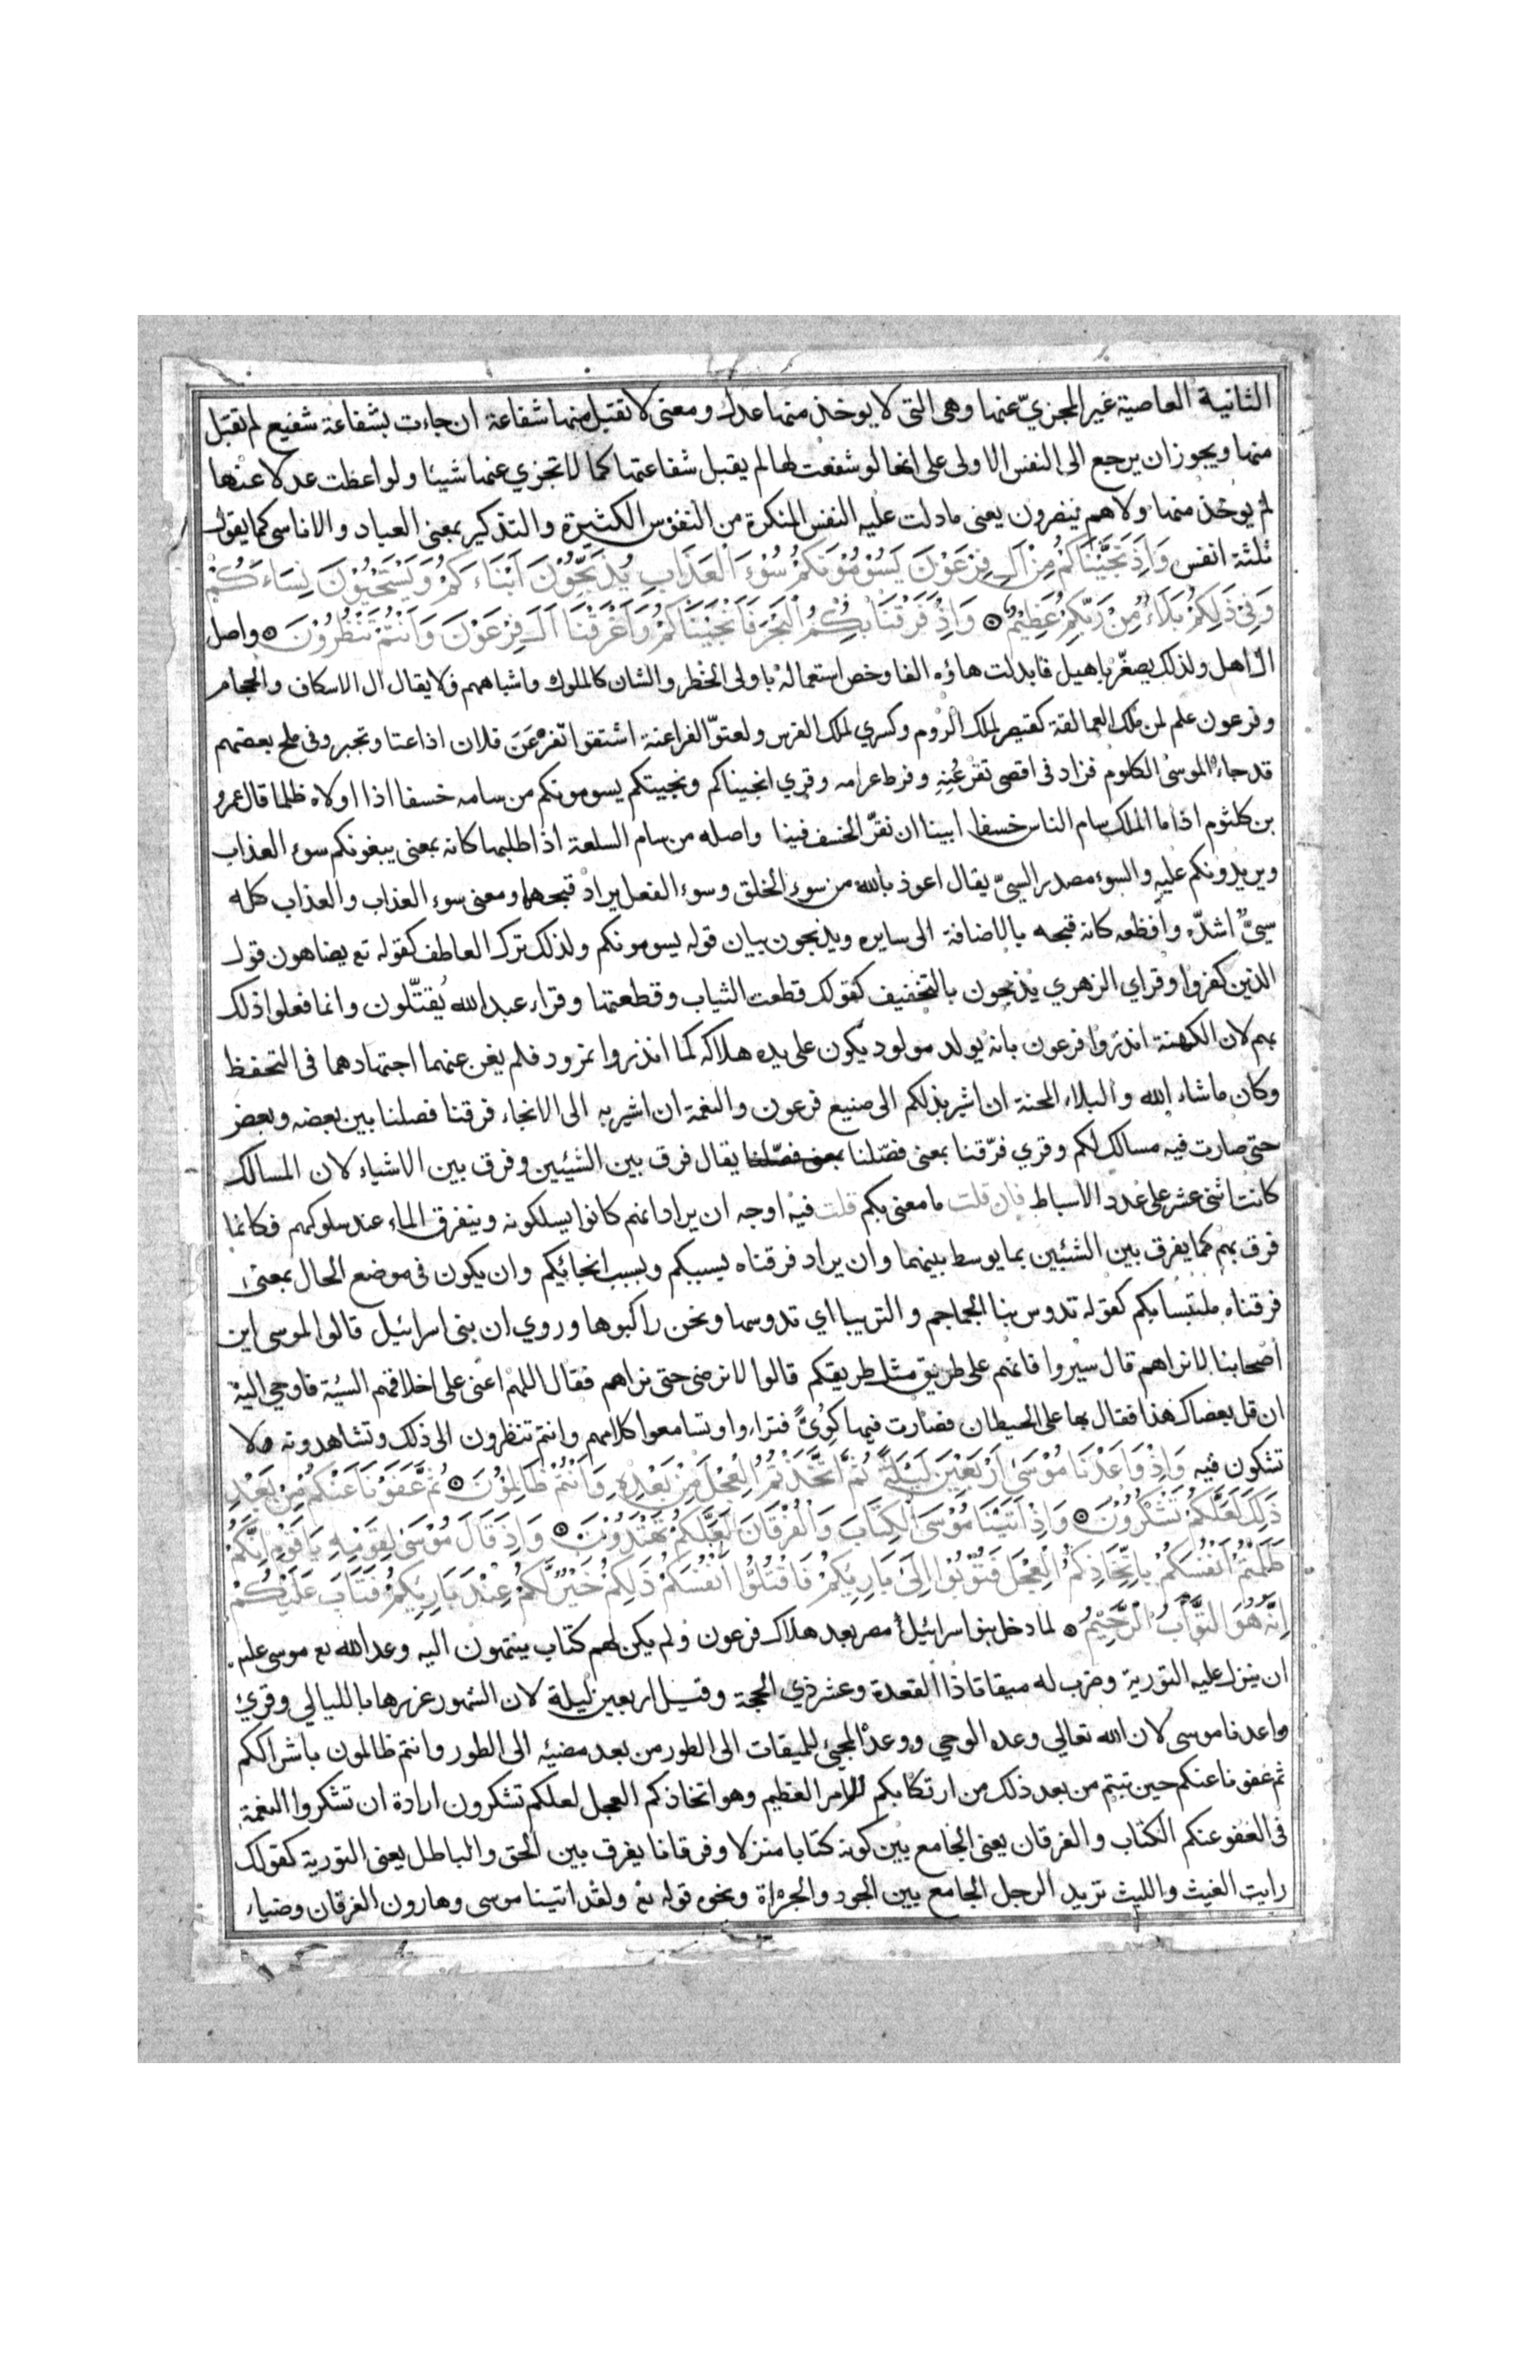 الثانية العاصية غير المجزيّ عنها وهى التى لا يوخذ منها عدل ومعنى لا تقبل منها شفاعة ان جاءت بشفاعة شفيع لم تقبل
منها ويجوز ان يرجع الى النفس الاولى على انها لو شفعت لها لم يقبل شفاعتها كما لا تجزي عنها شيئا ولو اعطت عدلا عنها
لم يوخذ منها ولا هم ينصرون يعنى ما دلت عليه النفس المنكرة من النفوس الكثيرة والتذكير بمعنى العباد والاناسى كما يقول
ثلثة انفس وَاِذْ نَجَّيْنَاكُمْ مِنْ اٰلِ فِرْعَوْنَ يَسُوْمُوْنَكُمْ سُوْءَ الْعَذَابِ يُذَبِّحُوْنَ اَبْنَاءَكُمْ وَيَسْتَحْيُوْنَ نِسَاءَكُمْ
وَفِىْ ذَلِكُمْ بَلَاءٌ مِنْ رَبِّكُمْ عَظِيْمٌ وَاِذْ فَرَقْنَا بِكُمُ الْبَحْرَ فَاَنْجَيْنَاكُمْ وَاَغْرَقْنَا اٰلَ فِرْعَوْنَ وَاَنْتُمْ تَنْظُرُوْنَ واصل
ال اهل ولذلك يصغّر باهيل فابدلت هاؤه الفا وخص استعماله باولى الخطر والشان كالملوك واشباههم فلا يقال ال الاسكاف والحجام
وفرعون علم لمن ملك العمالقة كقيصر لملك الروم وكسري لملك الفرس ولعتوّ الفراعنة اشتقوا تَفَرْعَنَ فلان اذا عتا وتجبر وفى ملح بعضهم
قد جاءه الموسى الكلوم فزاد فى اقصى تفرعُنِهِ وفرط عرامه وقري انجيناكم ونجيتكم يسومونكم من سامه خسفا اذا اولاه ظلما قال عمرو
بن كلثوم اذا ما الملك سام الناس خسفا ابينا ان نقرّ الخسف فينا واصله من سام السلعة اذا طلبها كانه بمعنى يبغونكم سوء العذاب
ويريدونكم عليه والسوء مصدر السيّ يقال اعوذ بالله من سوء الخلق وسوء الفعل يراد قبحهما ومعنى سوء العذاب والعذاب كله
سيّئ اشدّه وافظعه كانه قبحه بالاضافة الى سايره ويذبحون بيان قوله يسومونكم ولذلك ترك العاطف كقوله تع يضاهون قول
الذين كفروا وقراي الزهري يذبحون بالتخفيف كقولك قطعت الثياب وقطعتها وقراء عبد الله يُقتّلون وانما فعلوا ذلك
بهم لان الكهنة انذروا فرعون بانه يولد مولود يكون على يده هلاكه كما انذروا نمرود فلم يغن عنهما اجتهادهما فى التحفظ
وكان ما شاء الله والبلاء المحنة ان اشير بذلكم الى صنيع فرعون والنعمة ان اشير به الى الانجاء فرقنا فصلنا بين بعضه وبعض
حتى صارت فيه مسالك لكم وقري فرّقنا بمعنى فصّلنا بمعنى فصّلنا يقال فرق بين الشيئين وفرق بين الاشياء لان المسالك
كانت اثنى عشر على عدد الاسباط فان قلت ما معنى بكم قلت فيه اوجه ان يراد انهم كانوا يسلكونه ويتفرق الماء عند سلوكهم فكانما
فرق بهم كما يفرق بين الشيئين بما يوسط بينهما وان يراد فرقناه بسببكم وبسبب انجائيكم وان يكون فى موضع الحال بمعنى
فرقناه ملتبسا بكم كقوله تدوس بنا الجماجم والتريبا اي تدوسها ونحن راكبوها وروي ان بنى اسرائيل قالوا لموسى اين
اصحابنا لا نراهم قال سيروا فانهم على طريق مثل طريقكم قالوا لا نرضى حتى نراهم فقال اللهم اعنى على اخلاقهم السيئة فاوحى اليه
ان قل بعصاك هذا فقال بها على الحيطان فصارت فيها كِوًى فتراءوا وتسامعوا كلامهم وانتم تنظرون الى ذلك وتشاهدونه ولا
تشكون فيه وَاِذْ وَاعَدْنَا مُوْسَى اَرْبَعِيْنَ لَيْلَةً ثُمَّ اتَّخَذْتُمُ الْعِجْلَ مِنْ بَعْدِهِ وَاَنْتُمْ ظَالِمُوْنَ ثُمَّ عَفَوْنَا عَنْكُمْ مِنْ بَعْدِ
ذَلِكَ لَعَلَّكُمْ تَشْكُرُوْنَ وَاِذْ اٰتَيْنَا مُوْسَى الْكِتَابَ وَالْفُرْقَانَ لَعَلَّكُمْ تَهْتَدُوْنَ وَاِذْ قَالَ مُوْسَى لِقَوْمِهِ يَا قَوْمِ اِنَّكُمْ
ظَلَمْتُمْ اَنْفُسَكُمْ بِاتِّخَاذِكُمُ الْعِجْلَ فَتُوْبُوْا اِلَى بَارِئِكُمْ فَاقْتُلُوْا اَنْفُسَكُمْ ذَلِكُمْ خَيْرٌ لَّكُمْ عِنْدَ بَارِئِكُمْ فَتَابَ عَلَيْكُمْ
اِنَّهُ هُوَ التَّوَّابُ الرَّحِيْمُ لما دخل بنو اسرائيل مصر بعد هلاك فرعون ولم يكن لهم كتاب ينتهون اليه وعد الله تع موسى علم
ان ينزل عليه التورية وضرب له ميقاتا ذا القعدة وعشر ذي الحجة وقيل اربعين ليلة لان الشهور غررها بالليالي وقري
واعدنا موسى لان الله تعالى وعده الوحي ووعد المجئ للميقات الى الطور من بعد مضيّه الى الطور وانتم ظالمون باشراككم
ثم عفونا عنكم حين تبتم من بعد ذلك من ارتكابكم الامر العظيم وهو اتخاذكم العجل لعلكم تشكرون ارادة ان تشكروا النعمة
فى العفو عنكم الكتاب والفرقان يعنى الجامع بين كونه كتابا منزلا وفرقانا يفرق بين الحق والباطل يعنى التورية كقولك
رايت الغيث والليث تريد الرجل الجامع بين الجود والجرءاة ونحوه قوله تع ولقد اتينا موسى وهارون الفرقان وضياء